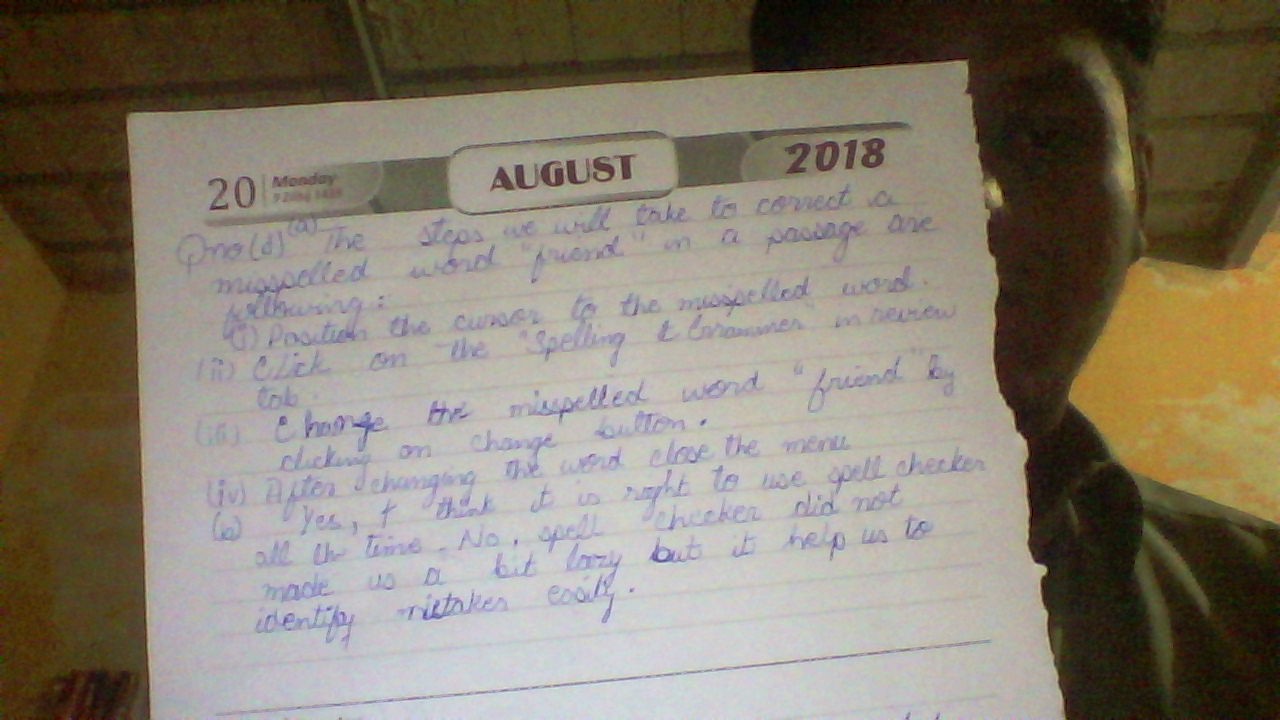 20 Monday
AUGUST
2018
Qno(d) (a) The steps we will take to correct a
misspelled word "friend" in a passage are
following:
(i) Position the cursor to the misspelled word.
(ii) Click on the "Spelling & Grammer" in review
tab.
(iii) Change the misspelled word "friend" by
clicking on change button.
(iv) After changing the word close the menu
Yes, I think it is right to use spell checker
all the time. No, spell checker did not
made us a bit lazy but it help us to
identify mistakes easily.